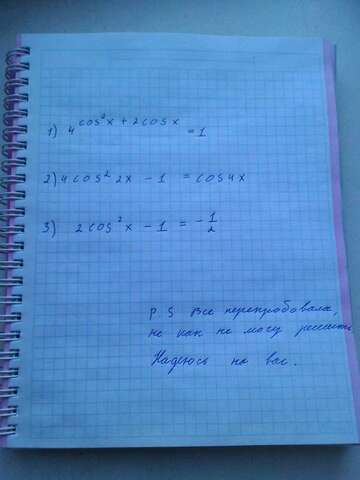 1) 4^cos²x + 2cosx = 1
2) 4cos² 2x - 1 = cos4x
3) 2cos²x - 1 = -1/2
p S Все перепробовала,
не как не могу решить
Надеюсь на вас.